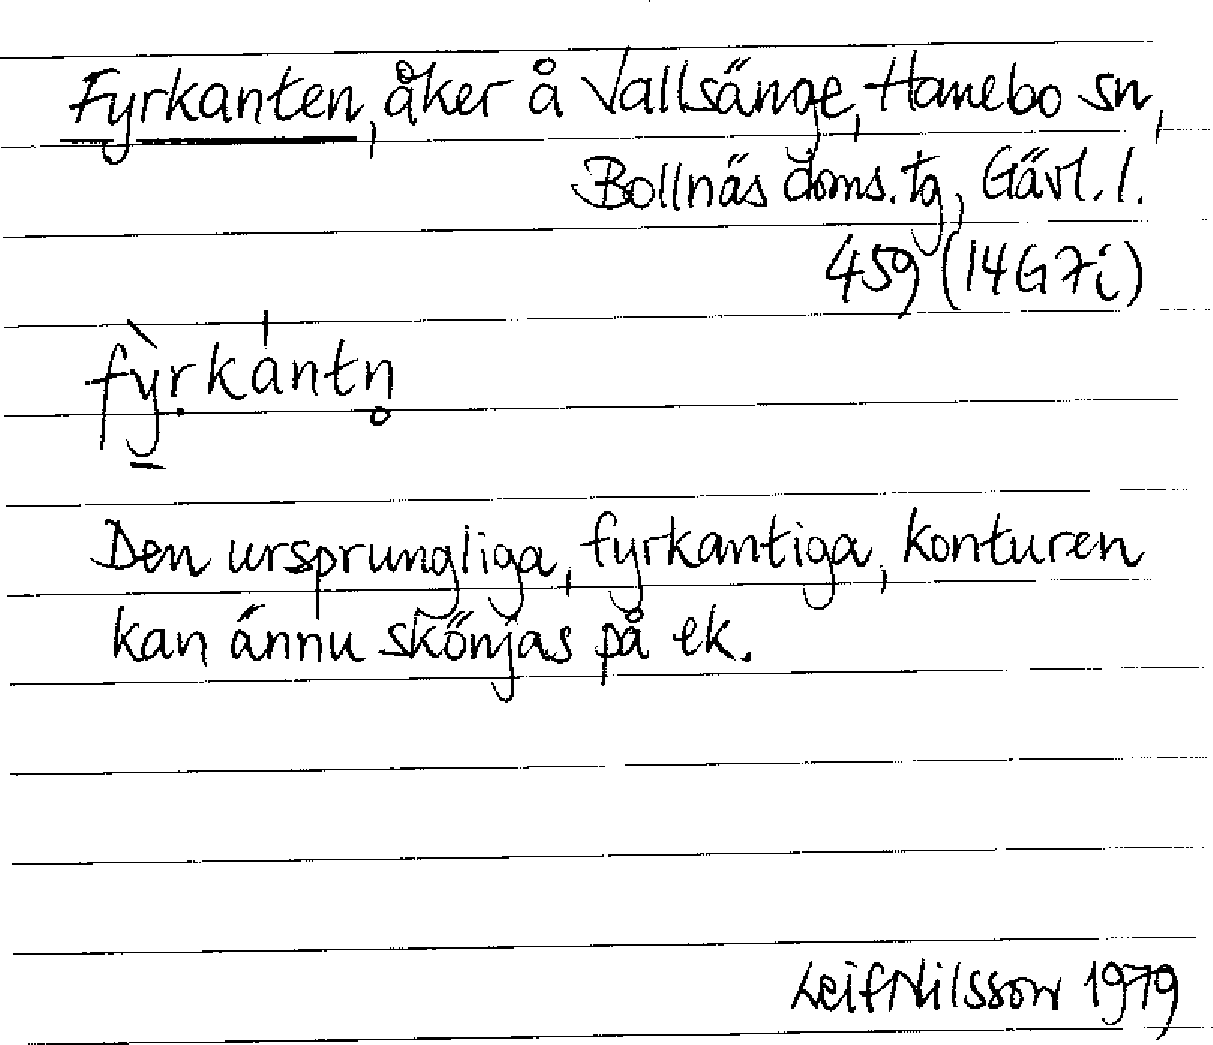 Fyrkanten, åker å Vallsänge, Hanebo sn,
Bollnäs doms. tg, Gävl. l.
459 (14G7i)
fỳ̠ṛkántn̥
Den ursprungliga, fyrkantiga, konturen
kan ännu skönjas på ek.
Leif Nilsson 1979